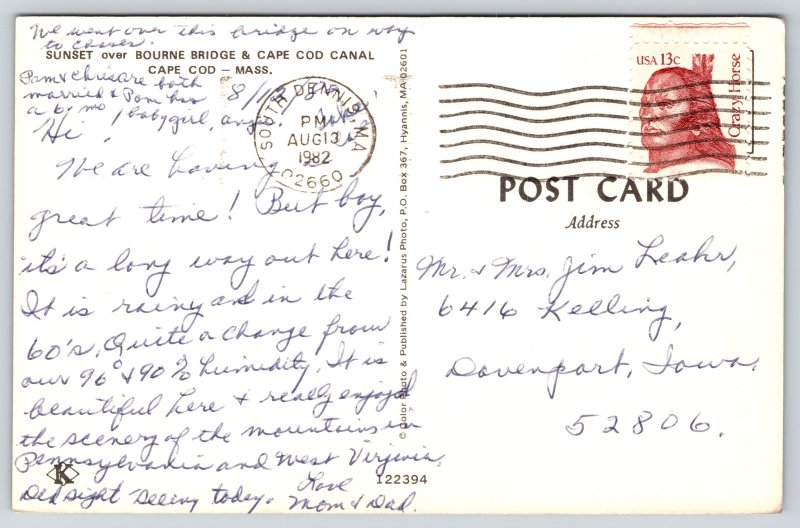 We went over this bridge on way
to
SUNSET over BOURNE BRIDGE & CAPE COD CANAL
CAPE COD – MASS.
Pam & Chris are both
married & Pam has
a 6 mo
baby girl,
8/13
Hi,
We are having
great time! But boy,
it's a long way out here!
It is rainy and in the
60's. Quite a change from
our 96° & 90% humidity. It is
beautiful here & really enjoyed
the scenery of the mountains in
Pennsylvania and West Virginia,
Did sight seeing today.
Love
Mom & Dad.
K
122394
© Color Photo & Published by Lazarus Photo, P.O. Box 367, Hyannis, MA 02601
SOUTH DENNIS, MA
PM
AUG 13
1982
02660
USA 13c
Crazy Horse
POST CARD
Address
Mr. & Mrs. Jim Leahr,
6416 Kelling,
Davenport, Iowa.
52806.